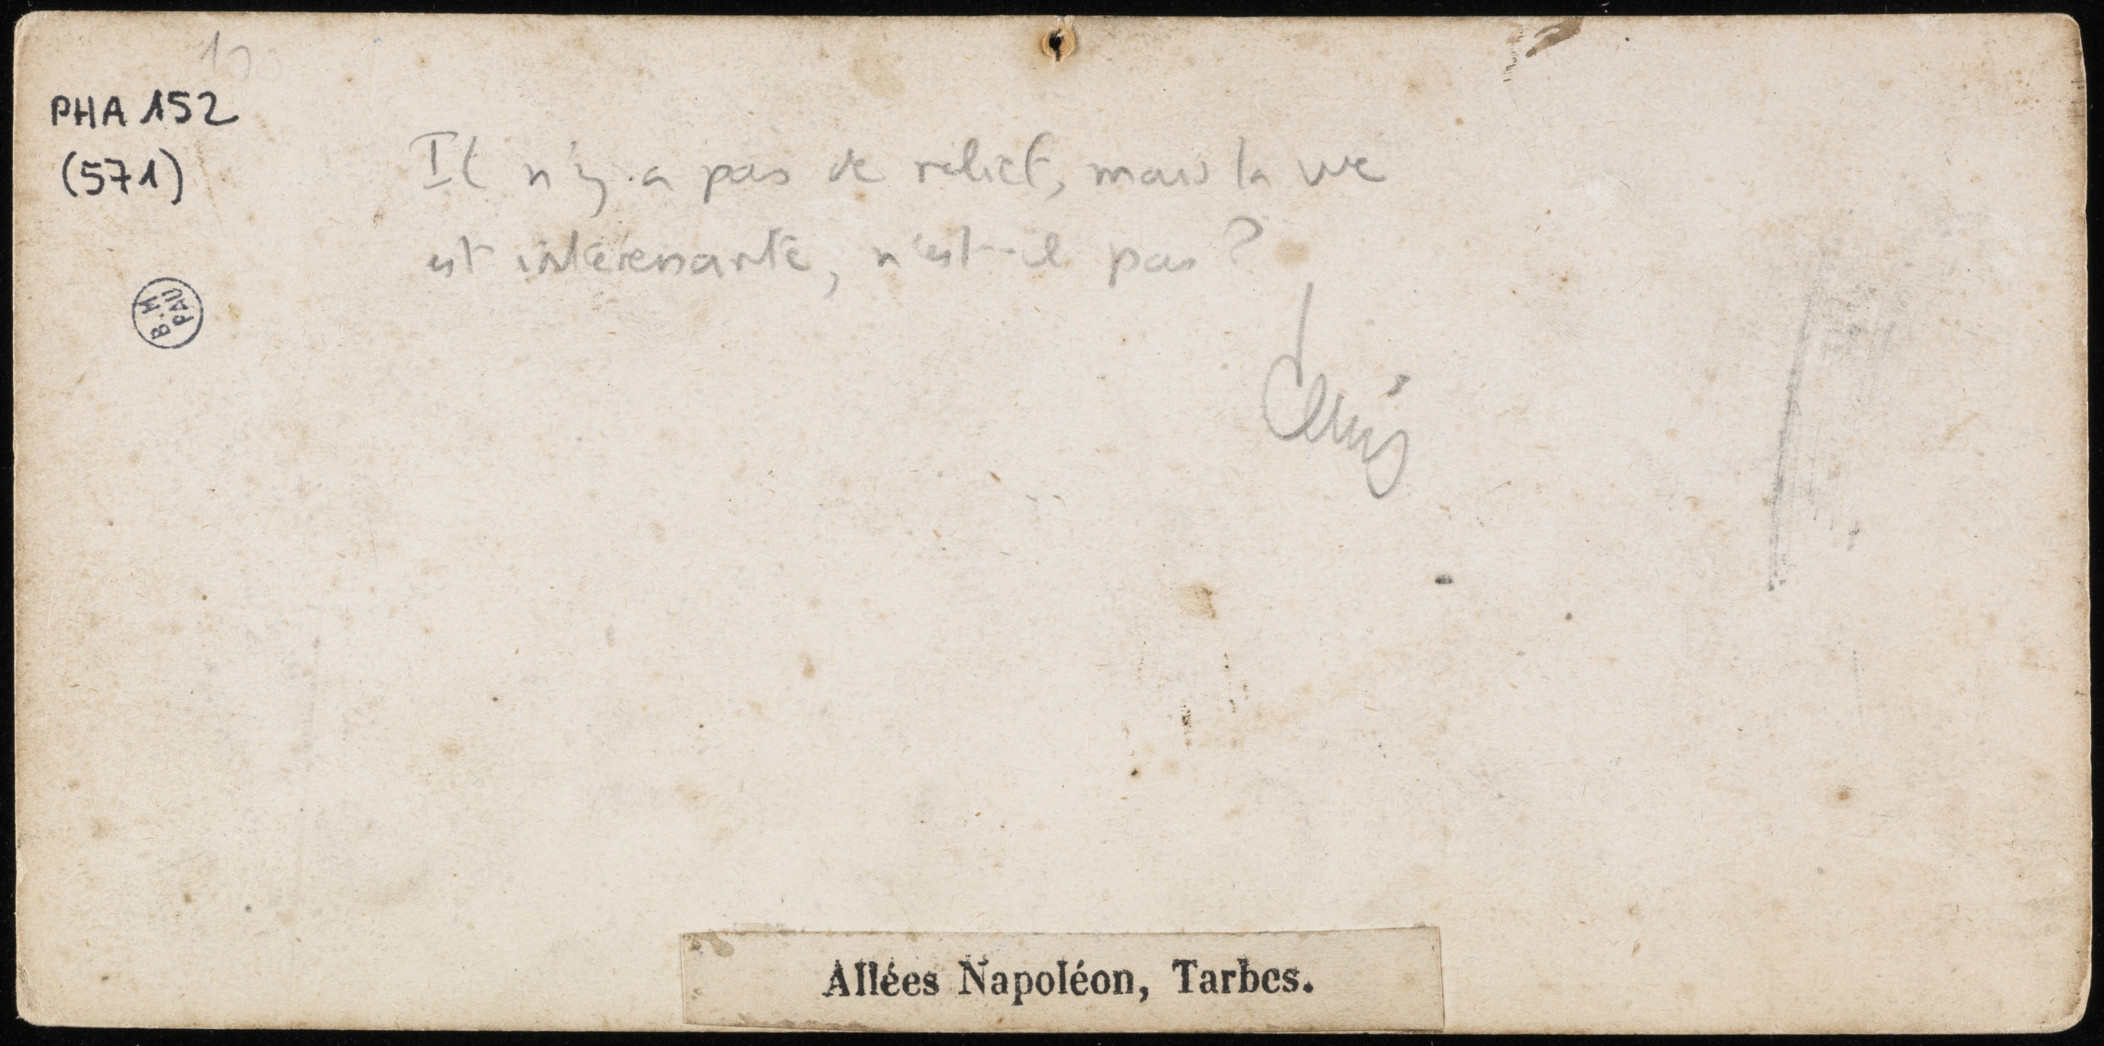 100
PHA 152
(571)
Il n'y a pas de relief, mais la vue
est intéressante, n'est-il pas ?
Denis
B.M
PAU
Allées Napoléon, Tarbes.